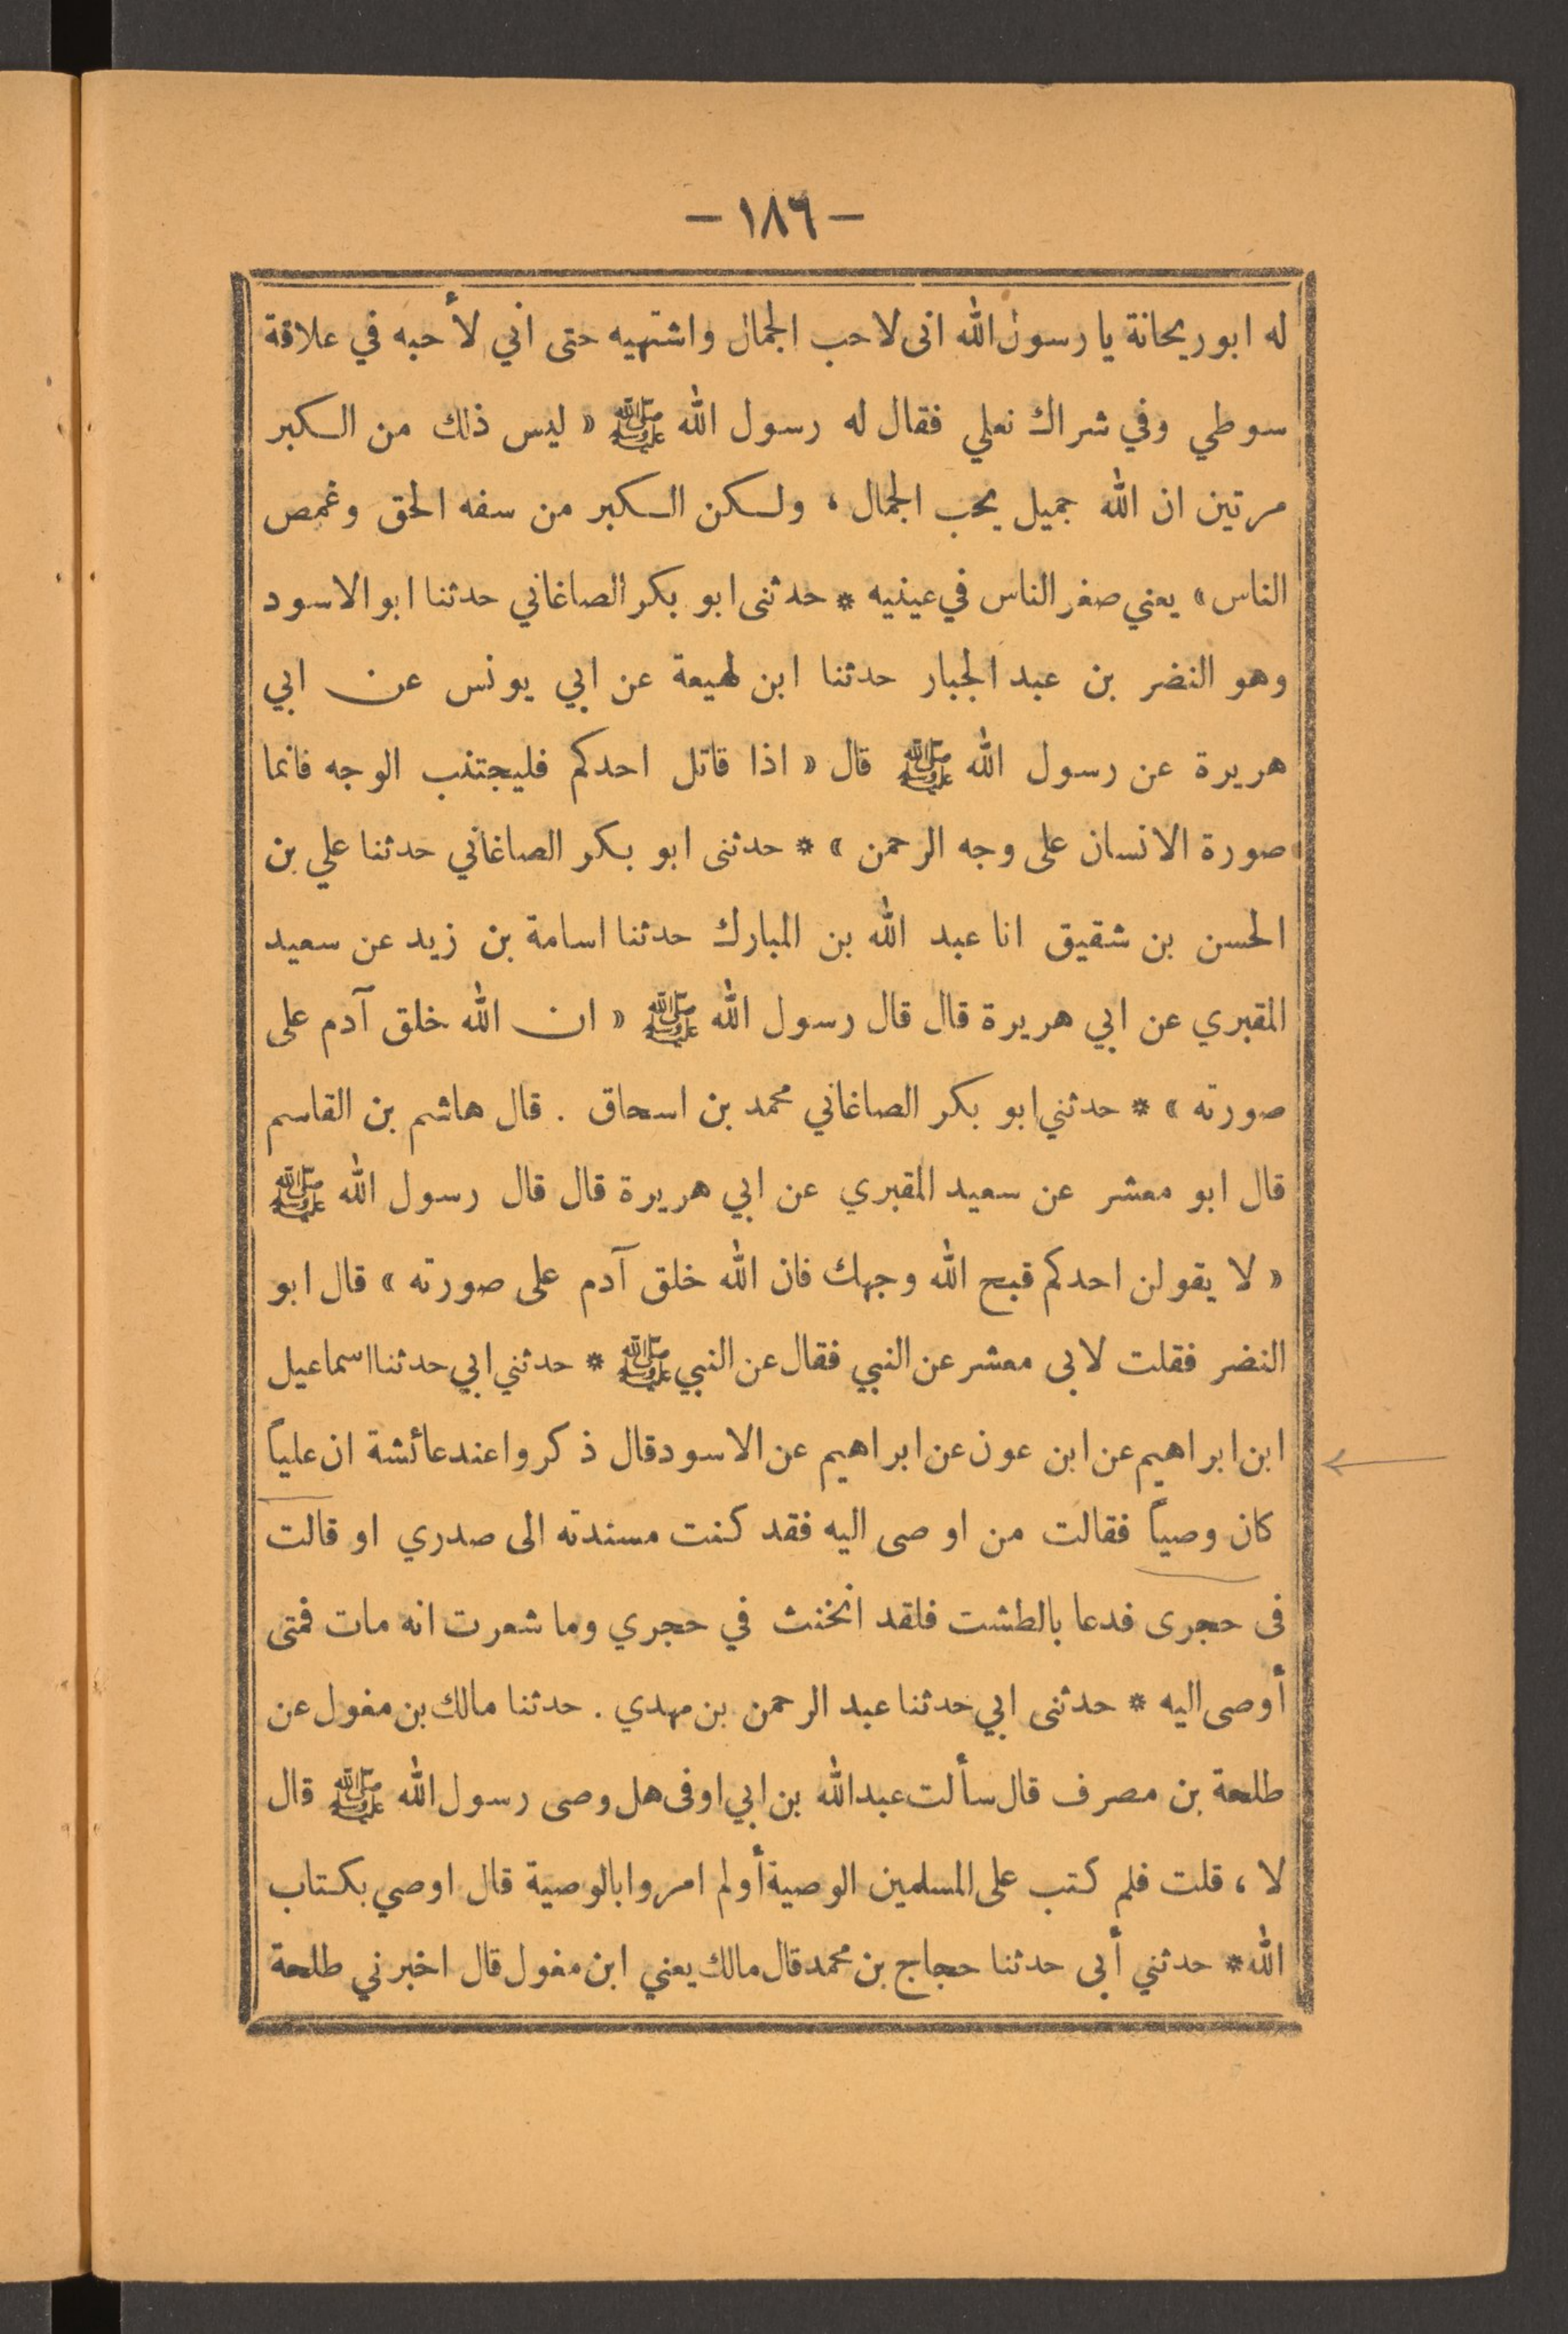 — ١٨٦ —
له ابو ريحانة يا رسول الله انى لاحب الجمال واشتهيه حتى اني لأحبه في علاقة
سوطي وفي شراك نعلي فقال له رسول الله ﷺ « ليس ذلك من الكبر
مرتين ان الله جميل يحب الجمال ، ولكن الكبر من سفه الحق وغمص
الناس » يعني صغر الناس في عينيه * حدثنى ابو بكر الصاغاني حدثنا ابو الاسود
وهو النضر بن عبد الجبار حدثنا ابن لهيعة عن ابي يونس عن ابي
هريرة عن رسول الله ﷺ قال « اذا قاتل احدكم فليجتنب الوجه فانما
صورة الانسان على وجه الرحمن » * حدثنى ابو بكر الصاغاني حدثنا علي بن
الحسن بن شقيق انا عبد الله بن المبارك حدثنا اسامة بن زيد عن سعيد
المقبري عن ابي هريرة قال قال رسول الله ﷺ « ان الله خلق آدم على
صورته » * حدثني ابو بكر الصاغاني محمد بن اسحاق . قال هاشم بن القاسم
قال ابو معشر عن سعيد المقبري عن ابي هريرة قال قال رسول الله ﷺ
« لا يقولن احدكم قبح الله وجهك فان الله خلق آدم على صورته » قال ابو
النضر فقلت لابى معشر عن النبي فقال عن النبي ﷺ * حدثني ابي حدثنا اسماعيل
ابن ابراهيم عن ابن عون عن ابراهيم عن الاسود قال ذكروا عند عائشة ان علياً
كان وصياً فقالت من اوصى اليه فقد كنت مسندته الى صدري او قالت
فى حجرى فدعا بالطشت فلقد انخنث في حجري وما شعرت انه مات فمتى
أوصى اليه * حدثنى ابي حدثنا عبد الرحمن بن مهدي . حدثنا مالك بن مغول عن
طلحة بن مصرف قال سألت عبد الله بن ابي اوفى هل وصى رسول الله ﷺ قال
لا ، قلت فلم كتب على المسلمين الوصية أولم امروا بالوصية قال اوصي بكتاب
الله * حدثني أبى حدثنا حجاج بن محمد قال مالك يعني ابن مغول قال اخبرني طلحة